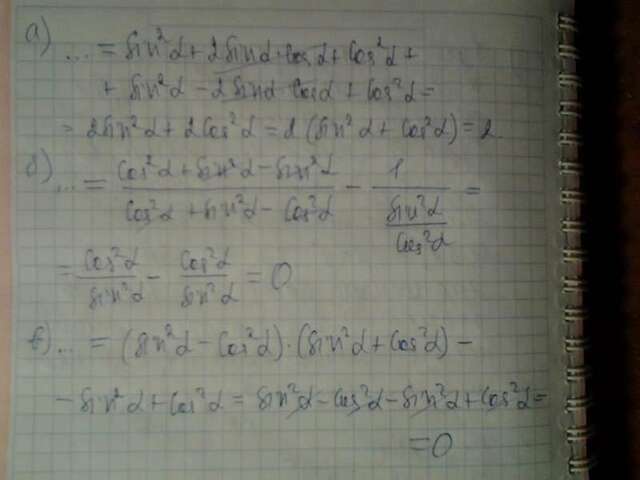 а) ... = sin²α + 2sinα · cosα + cos²α +
+ sin²α - 2sinα cosα + cos²α =
= 2sin²α + 2cos²α = 2(sin²α + cos²α) = 2.
б) ... = (cos²α + sin²α - sin²α)/(cos²α + sin²α - cos²α) - 1/(sin²α/cos²α) =
= cos²α/sin²α - cos²α/sin²α = 0
в) ... = (sin²α - cos²α) · (sin²α + cos²α) -
- sin²α + cos²α = sin²α - cos²α - sin²α + cos²α =
= 0